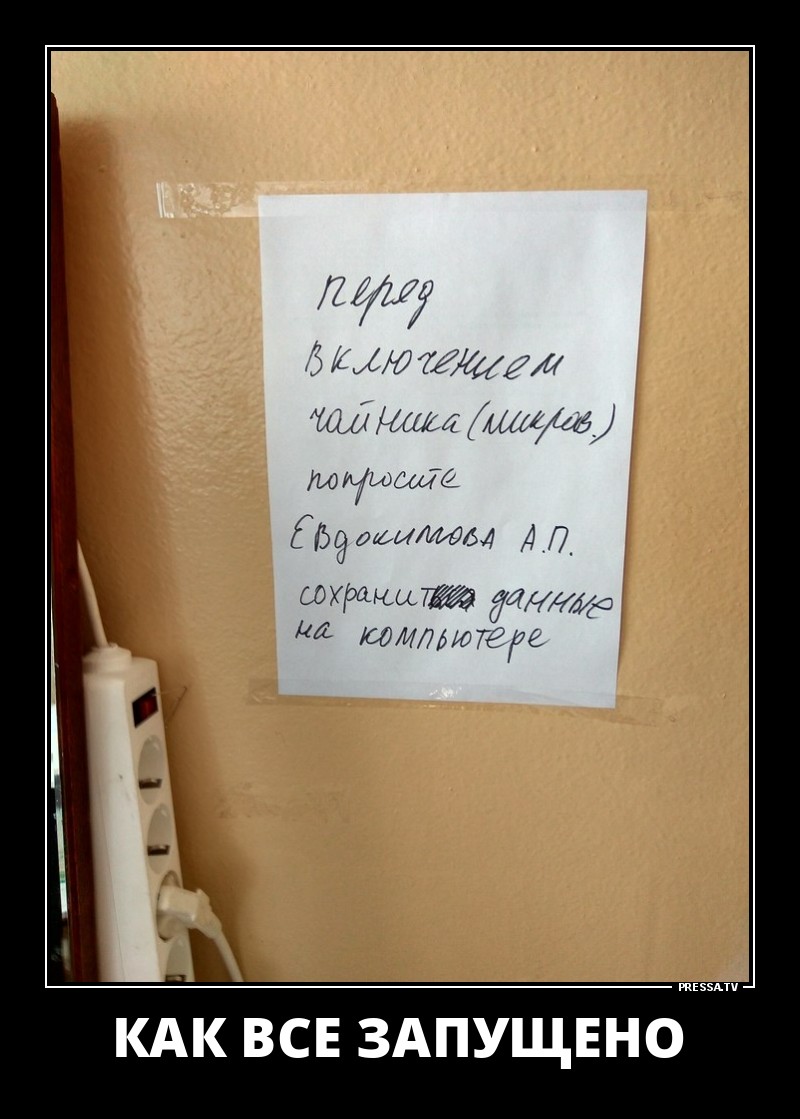 перед
включением
чайника (микров.)
попросите
Евдокимова А.П.
сохранить данные
на компьютере
PRESSA.TV
КАК ВСЕ ЗАПУЩЕНО